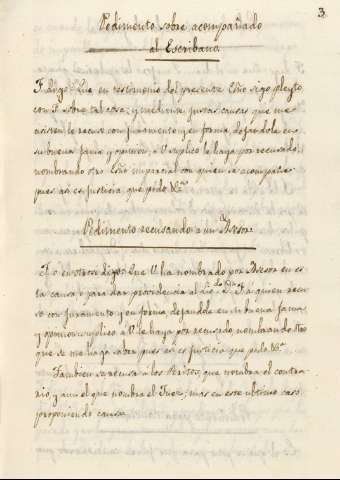 3
Pedimento sobre acompañado
al Escribano
F. digo: Que en testimonio del presente Esno sigo pleyto
con F. sobre tal cosa; y mediante justas causas que me
asisten le recuso con juramento y en forma dejándola en
su buena fama y opinion; a V. suplico le haya por recusado,
nombrando otro Esno imparcial con quien se acompañe
pues asi es justicia que pido &a
Pedimento recusando a un Asesor
F. en otros digo: Que V. ha nombrado por Asesor en es-
ta causa o para dar providencia al a quien recu-
so con juramento y en forma dejandole en su buena fama
y opinion suplico a V. le haya por recusado, nombrando otro
que se me haga saber pues asi es justicia que pido &a
Tambien se recusa a los Peritos, que nombra el contra-
rio, y aun el que nombra el Juez; mas en este ultimo caso
proponiendo causa